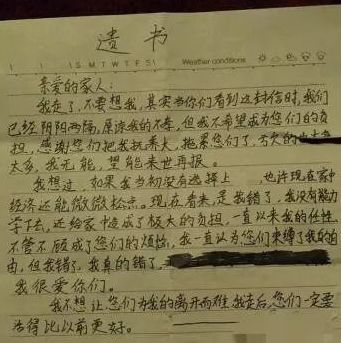 遗书
S M T W T F S Weather conditions
亲爱的家人:
我走了,不要想我,其实当你们看到这封信时,我们
已经阴阳两隔,原谅我的不孝,但我不希望成为您们的负
担,感谢您们把我抚养大,拖累您们了,亏欠的
太多,我无能,望能来世再报。
我想过,如果我当初没有选择上 也许现在家中
经济还能微微松点。现在看来,是我错了,我没有能力
学下去,还给家中造成了极大的负担,一直以来我的任性,
不管不顾成了您们的烦恼,我一直认为您们束缚了我的自
由,但我错了,我真的错了,
我很爱你们。
我不想让您们为我的离开而难 我走后,您们一定要
活得比以前更好。